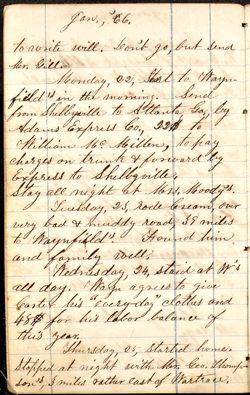 Jan., '66.
to write will. Don't go, but send
Mr. Gill.
Monday, 22, Start to Wayn-
field's in the morning. Send
from Shelbyville to Atlanta, Ga, by
Adams Express Co., 22$ to
William McMillen, to pay
charges on trunk & forward by
Express to Shelbyville.
Stay all night at Mrs. Moody's.
Tuesday, 23, rode over
very bad & muddy road, 39 miles
to Waynfield's. Found him
and family well.
Wednesday, 24, staid at W's
all day. Wayn agrees to give
his "every-day" clothes and
48$ for his labor balance of
this year.
Thursday, 25, started home.
Stopped at night with Mr. Geo. Thomp-
son's, 3 miles rather east of Wartrace.